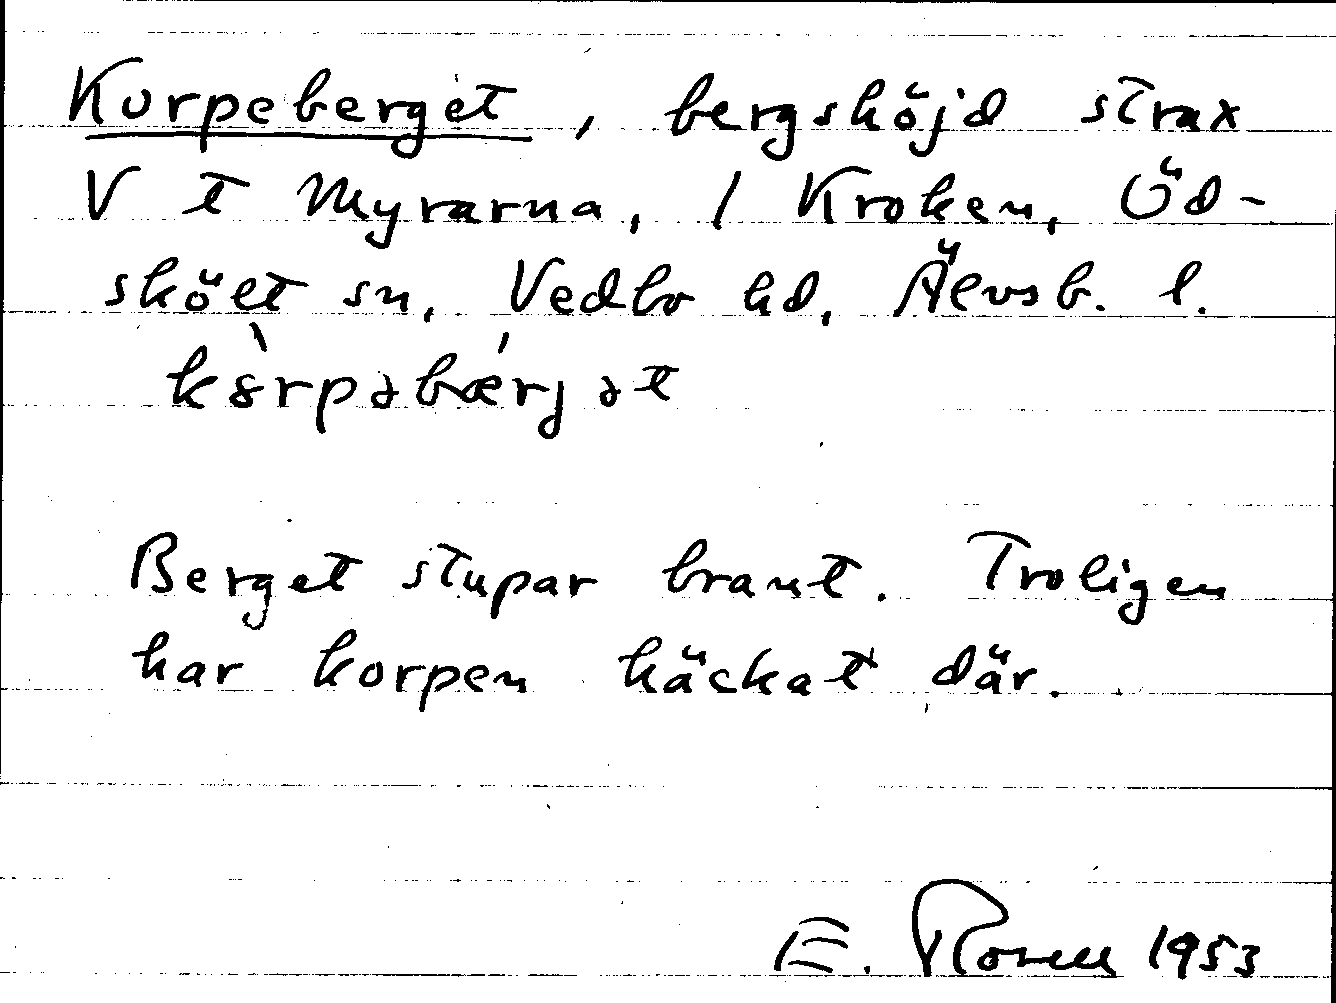 Korpeberget, bergshöjd strax
V t Myrarna, / Kroken, Öd-
skölt sn, Vedbo hd, Älvsb. l.
kȯ̀rpəbǽrjət
Berget stupar brant. Troligen
har korpen häckat där.
E. 1953